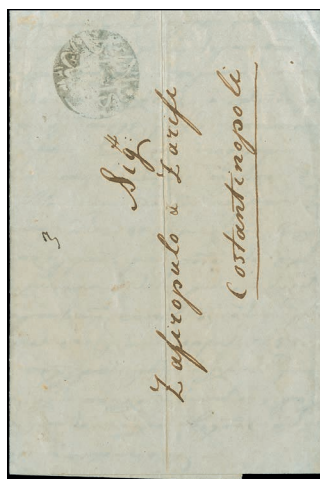 Sig.ri
Zafiropulo a Zarifi
Costantinopoli
3